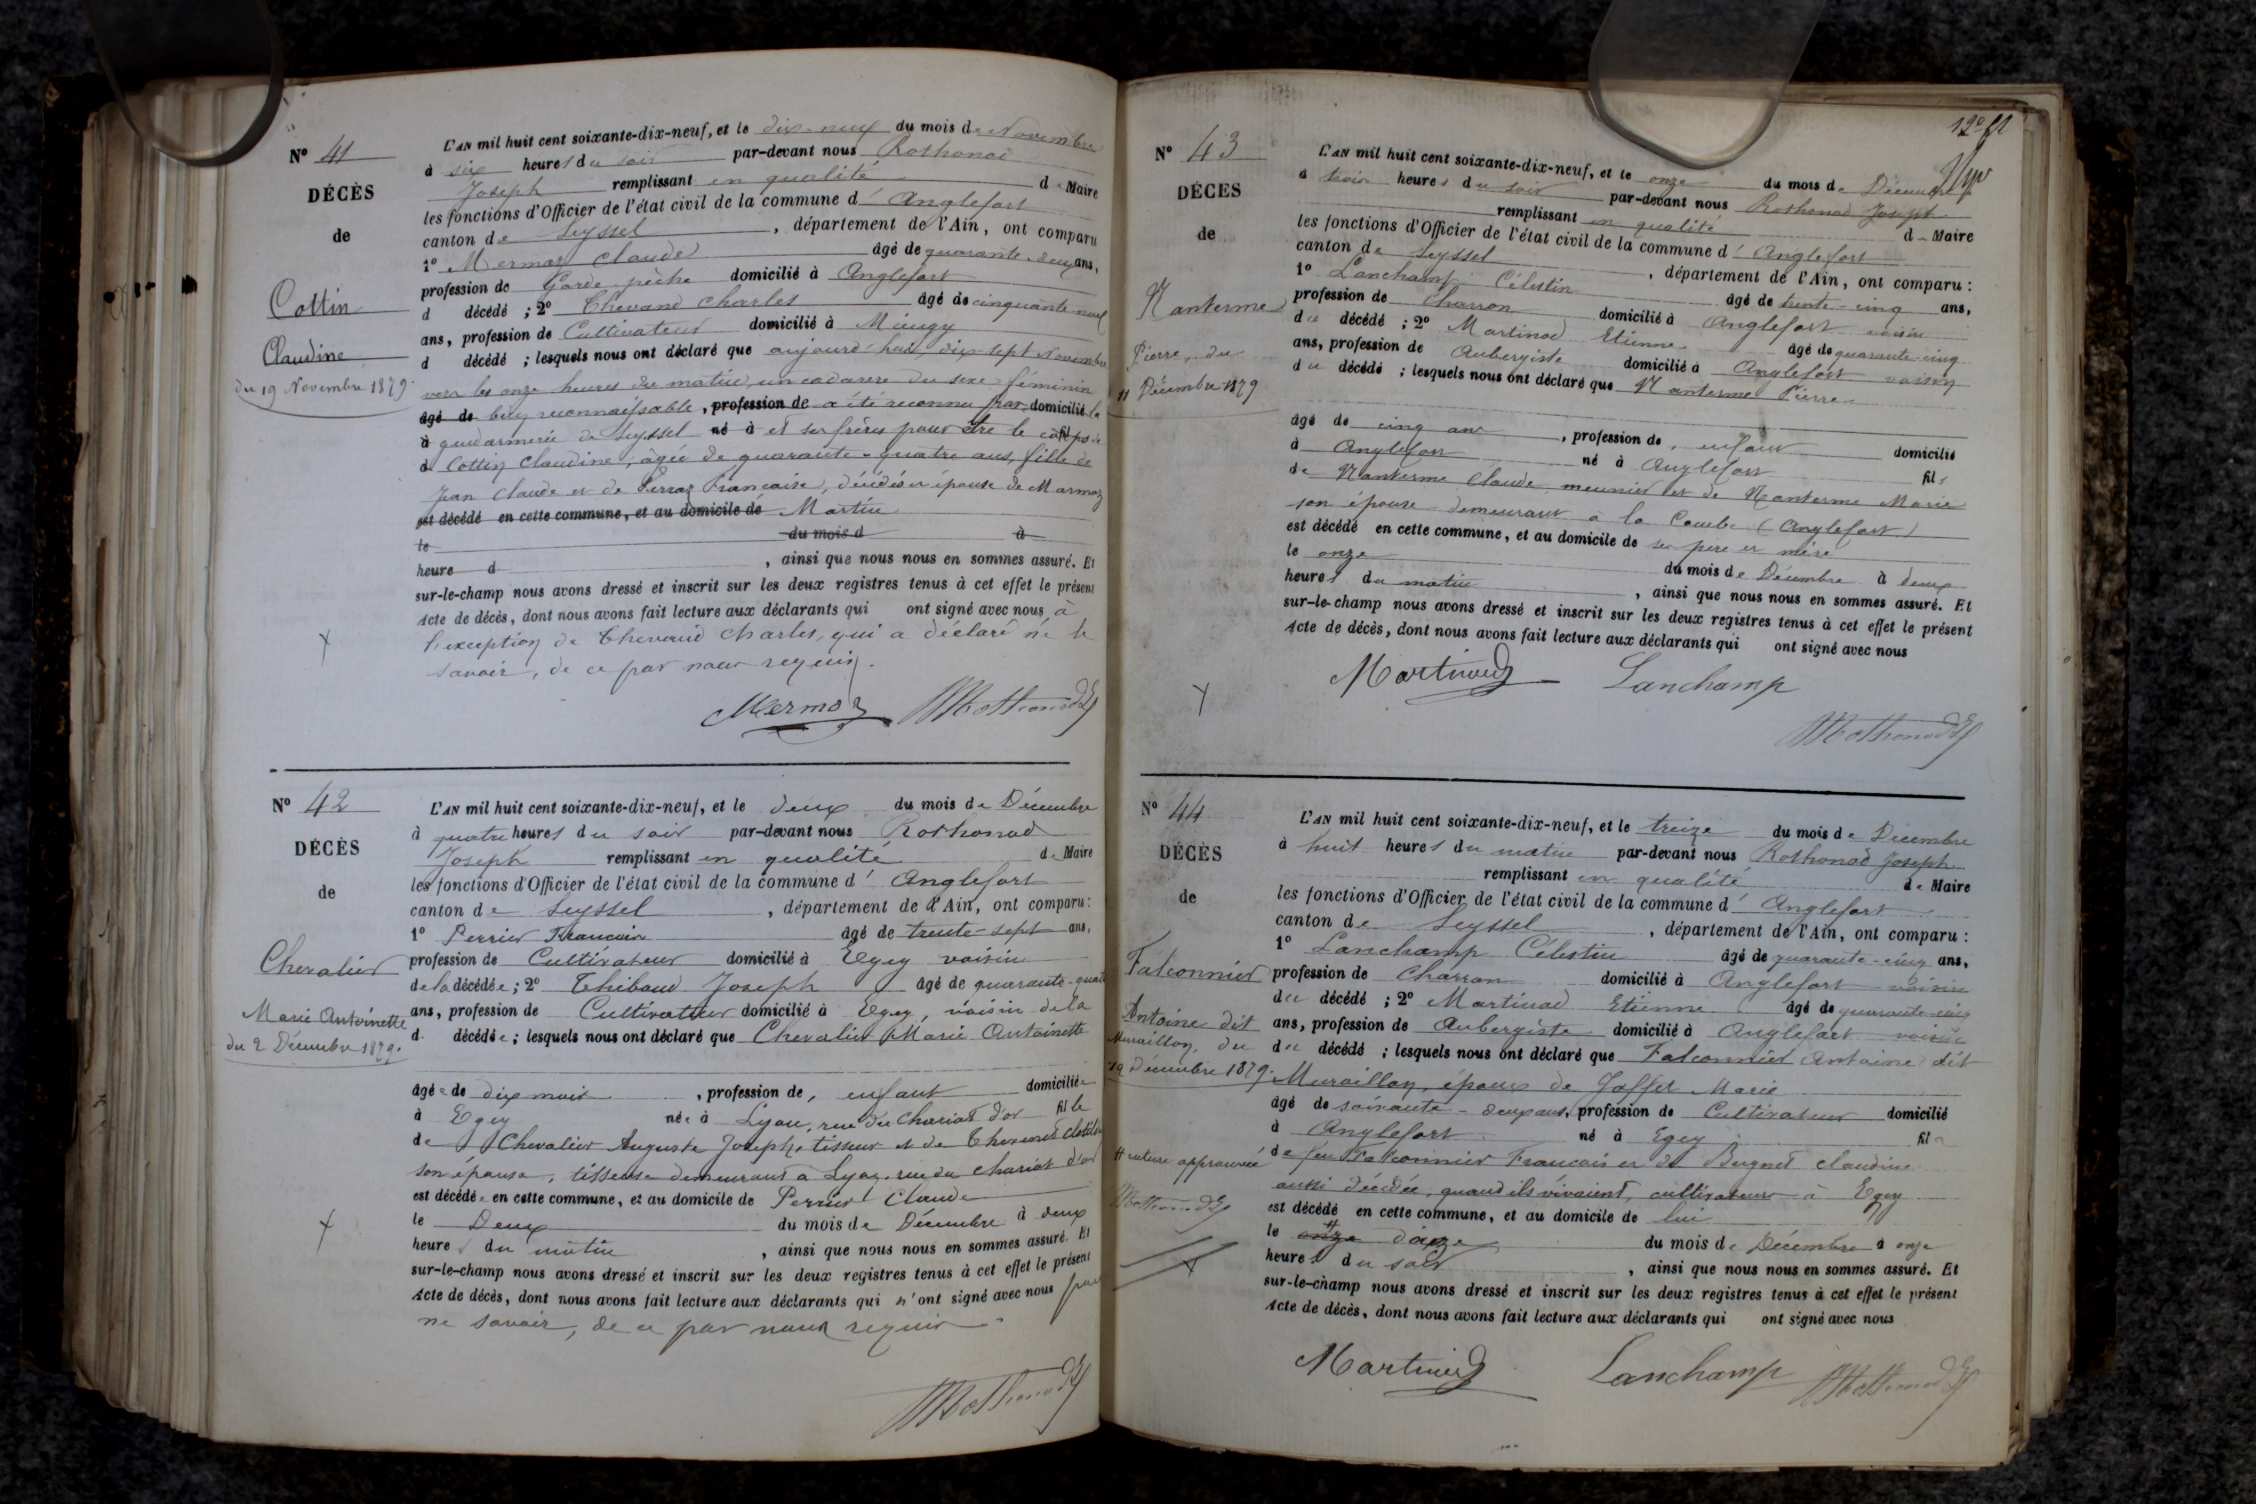 N° 41
DÉCÈS
de
Cottin
Claudine
du 19 Novembre 1879.
L'AN mil huit cent soixante-dix-neuf, et le dix-neuf du mois de Novembre
à six heures du soir par-devant nous Rothonod
Joseph remplissant en qualité de Maire
les fonctions d'Officier de l'état civil de la commune d'Anglefort
canton de Seyssel, département de l'Ain, ont comparu
1° Mermoz Claude âgé de quarante-deux ans,
profession de Garde pêche domicilié à Anglefort
d décédé ; 2° Thevand Charles âgé de cinquante-neuf
ans, profession de Cultivateur domicilié à Mieugy
d décédé ; lesquels nous ont déclaré que aujourd'hui, dix-sept Novembre
vers les onze heures du matin, un cadavre du sexe féminin
âgé de bien reconnaissable, profession de a été reconnu par domicilié la
à gendarmerie de Seyssel né à et ses frères pour être le corps de
d Cottin Claudine, âgée de quarante-quatre ans, fille de
Jean Claude et de Perraz Françoise, décédés et épouse de Marmoz
est décédé en cette commune, et au domicile de Martin
le du mois d à
heure d , ainsi que nous nous en sommes assuré. Et
sur-le-champ nous avons dressé et inscrit sur les deux registres tenus à cet effet le présent
Acte de décès, dont nous avons fait lecture aux déclarants qui ont signé avec nous à
l'exception de Thevand Charles, qui a déclaré ne le
savoir, de ce par nous requis.
Mermoz Rothonod
N° 42
DÉCÈS
de
Chevalier
Marie Antoinette
du 2 Décembre 1879.
L'AN mil huit cent soixante-dix-neuf, et le deux du mois de Décembre
à quatre heures du soir par-devant nous Rothonod
Joseph remplissant en qualité de Maire
les fonctions d'Officier de l'état civil de la commune d'Anglefort
canton de Seyssel, département de l'Ain, ont comparu :
1° Perrier François âgé de trente-sept ans,
profession de Cultivateur domicilié à Egey voisin
de la décédée ; 2° Thibaud Joseph âgé de quarante-quatre
ans, profession de Cultivateur domicilié à Egey, voisin de la
d décédée ; lesquels nous ont déclaré que Chevalier Marie Antoinette
âgée de dix mois, profession de, enfant domiciliée
à Egey née à Lyon, rue du Chariot d'or fille
de Chevalier Auguste Joseph, tisseur et de Thevenet Clotilde
son épouse, tisseuse demeurant à Lyon, rue du Chariot d'or
est décédée en cette commune, et au domicile de Perrier Claude
le Deux du mois de Décembre à deux
heures du matin, ainsi que nous nous en sommes assuré. Et
sur-le-champ nous avons dressé et inscrit sur les deux registres tenus à cet effet le présent
Acte de décès, dont nous avons fait lecture aux déclarants qui n'ont signé avec nous pour
ne savoir, de ce par nous requis.
Rothonod
N° 43
DÉCÈS
de
Nanterme
Pierre, du
11 Décembre 1879
L'AN mil huit cent soixante-dix-neuf, et le onze du mois de Décembre
à trois heures du soir par-devant nous Rothonod Joseph
remplissant en qualité de Maire
les fonctions d'Officier de l'état civil de la commune d'Anglefort
canton de Seyssel, département de l'Ain, ont comparu :
1° Lanchamp Célestin âgé de trente-cinq ans,
profession de Charron domicilié à Anglefort voisin
du décédé ; 2° Martinod Etienne âgé de quarante-cinq
ans, profession de Aubergiste domicilié à Anglefort voisin
du décédé ; lesquels nous ont déclaré que Nanterme Pierre
âgé de cinq ans, profession de, enfant domicilié
à Anglefort né à Anglefort fils
de Nanterme Claude, meunier et de Nanterme Marie
son épouse demeurant à la Combe (Anglefort)
est décédé en cette commune, et au domicile de ses père et mère
le onze du mois de Décembre à deux
heures du matin, ainsi que nous nous en sommes assuré. Et
sur-le-champ nous avons dressé et inscrit sur les deux registres tenus à cet effet le présent
Acte de décès, dont nous avons fait lecture aux déclarants qui ont signé avec nous
Martinod Lanchamp
Rothonod
N° 44
DÉCÈS
de
Falconnier
Antoine dit
Muraillon, du
12 décembre 1879.
# rature approuvée
Rothonod
L'AN mil huit cent soixante-dix-neuf, et le treize du mois de Décembre
à huit heures du matin par-devant nous Rothonod Joseph
remplissant en qualité de Maire
les fonctions d'Officier de l'état civil de la commune d'Anglefort
canton de Seyssel, département de l'Ain, ont comparu :
1° Lanchamp Célestin âgé de quarante-cinq ans,
profession de Charron domicilié à Anglefort voisin
du décédé ; 2° Martinod Etienne âgé de quarante-cinq
ans, profession de Aubergiste domicilié à Anglefort voisin
du décédé ; lesquels nous ont déclaré que Falconnier Antoine dit
Muraillon, époux de Joffet Marie
âgé de soixante-deux ans, profession de Cultivateur domicilié
à Anglefort né à Egey fils
de feu Falconnier François et de Bugnet Claudine
aussi décédée, quand ils vivaient, cultivateurs à Egey
est décédé en cette commune, et au domicile de lui
le onze # douze du mois de Décembre à onze
heures du soir, ainsi que nous nous en sommes assuré. Et
sur-le-champ nous avons dressé et inscrit sur les deux registres tenus à cet effet le présent
Acte de décès, dont nous avons fait lecture aux déclarants qui ont signé avec nous
Martinod Lanchamp Rothonod